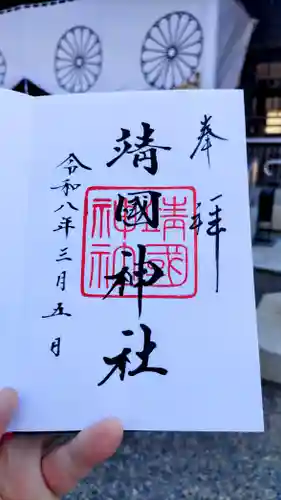 奉拝
靖國神社
靖國
神社
令和八年三月五月